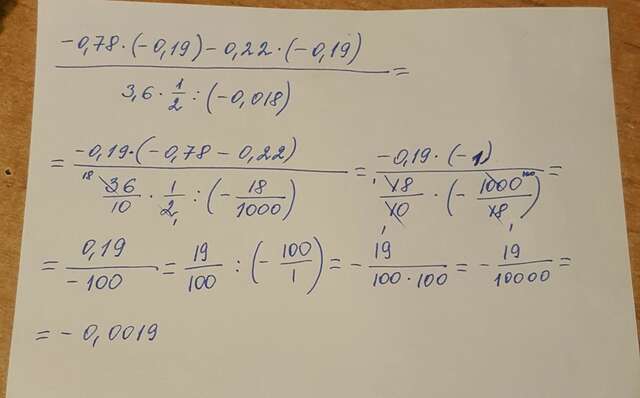 -0,78·(-0,19)-0,22·(-0,19)
3,6·1/2:(-0,018) =
= -0,19·(-0,78-0,22) / 18 36/10·1/2 1:(-18/1000) = -0,19·(-1) / 1 18/10 1·(-1000 100/18 1) =
= 0,19/-100 = 19/100 : (-100/1) = -19/100·100 = -19/10000 =
= -0,0019